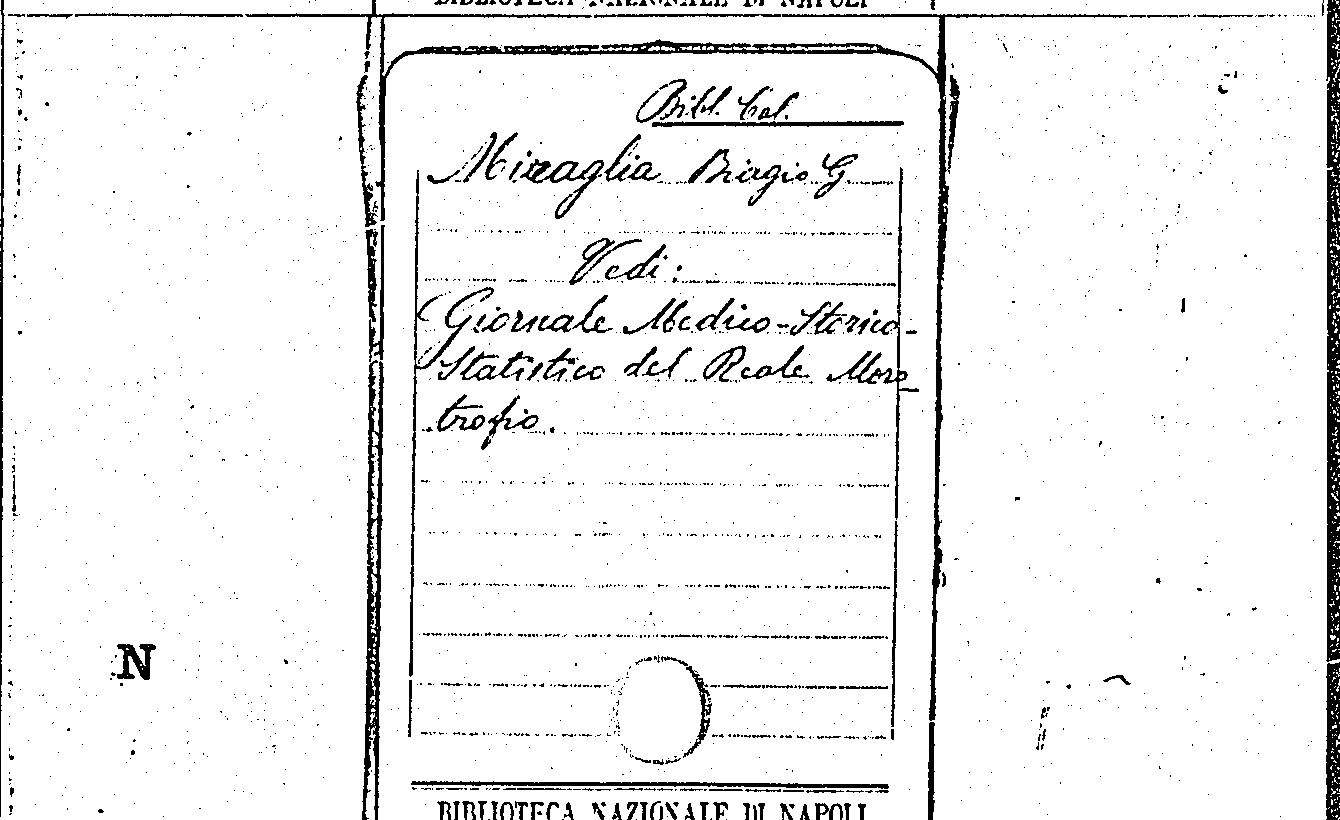 BIBLIOTECA NAZIONALE DI NAPOLI
Bibl. Cal.
Miraglia Biagio G.
Vedi:
Giornale Medico-Storico-
Statistico del Reale Moro-
trofio.
N
BIBLIOTECA NAZIONALE DI NAPOLI